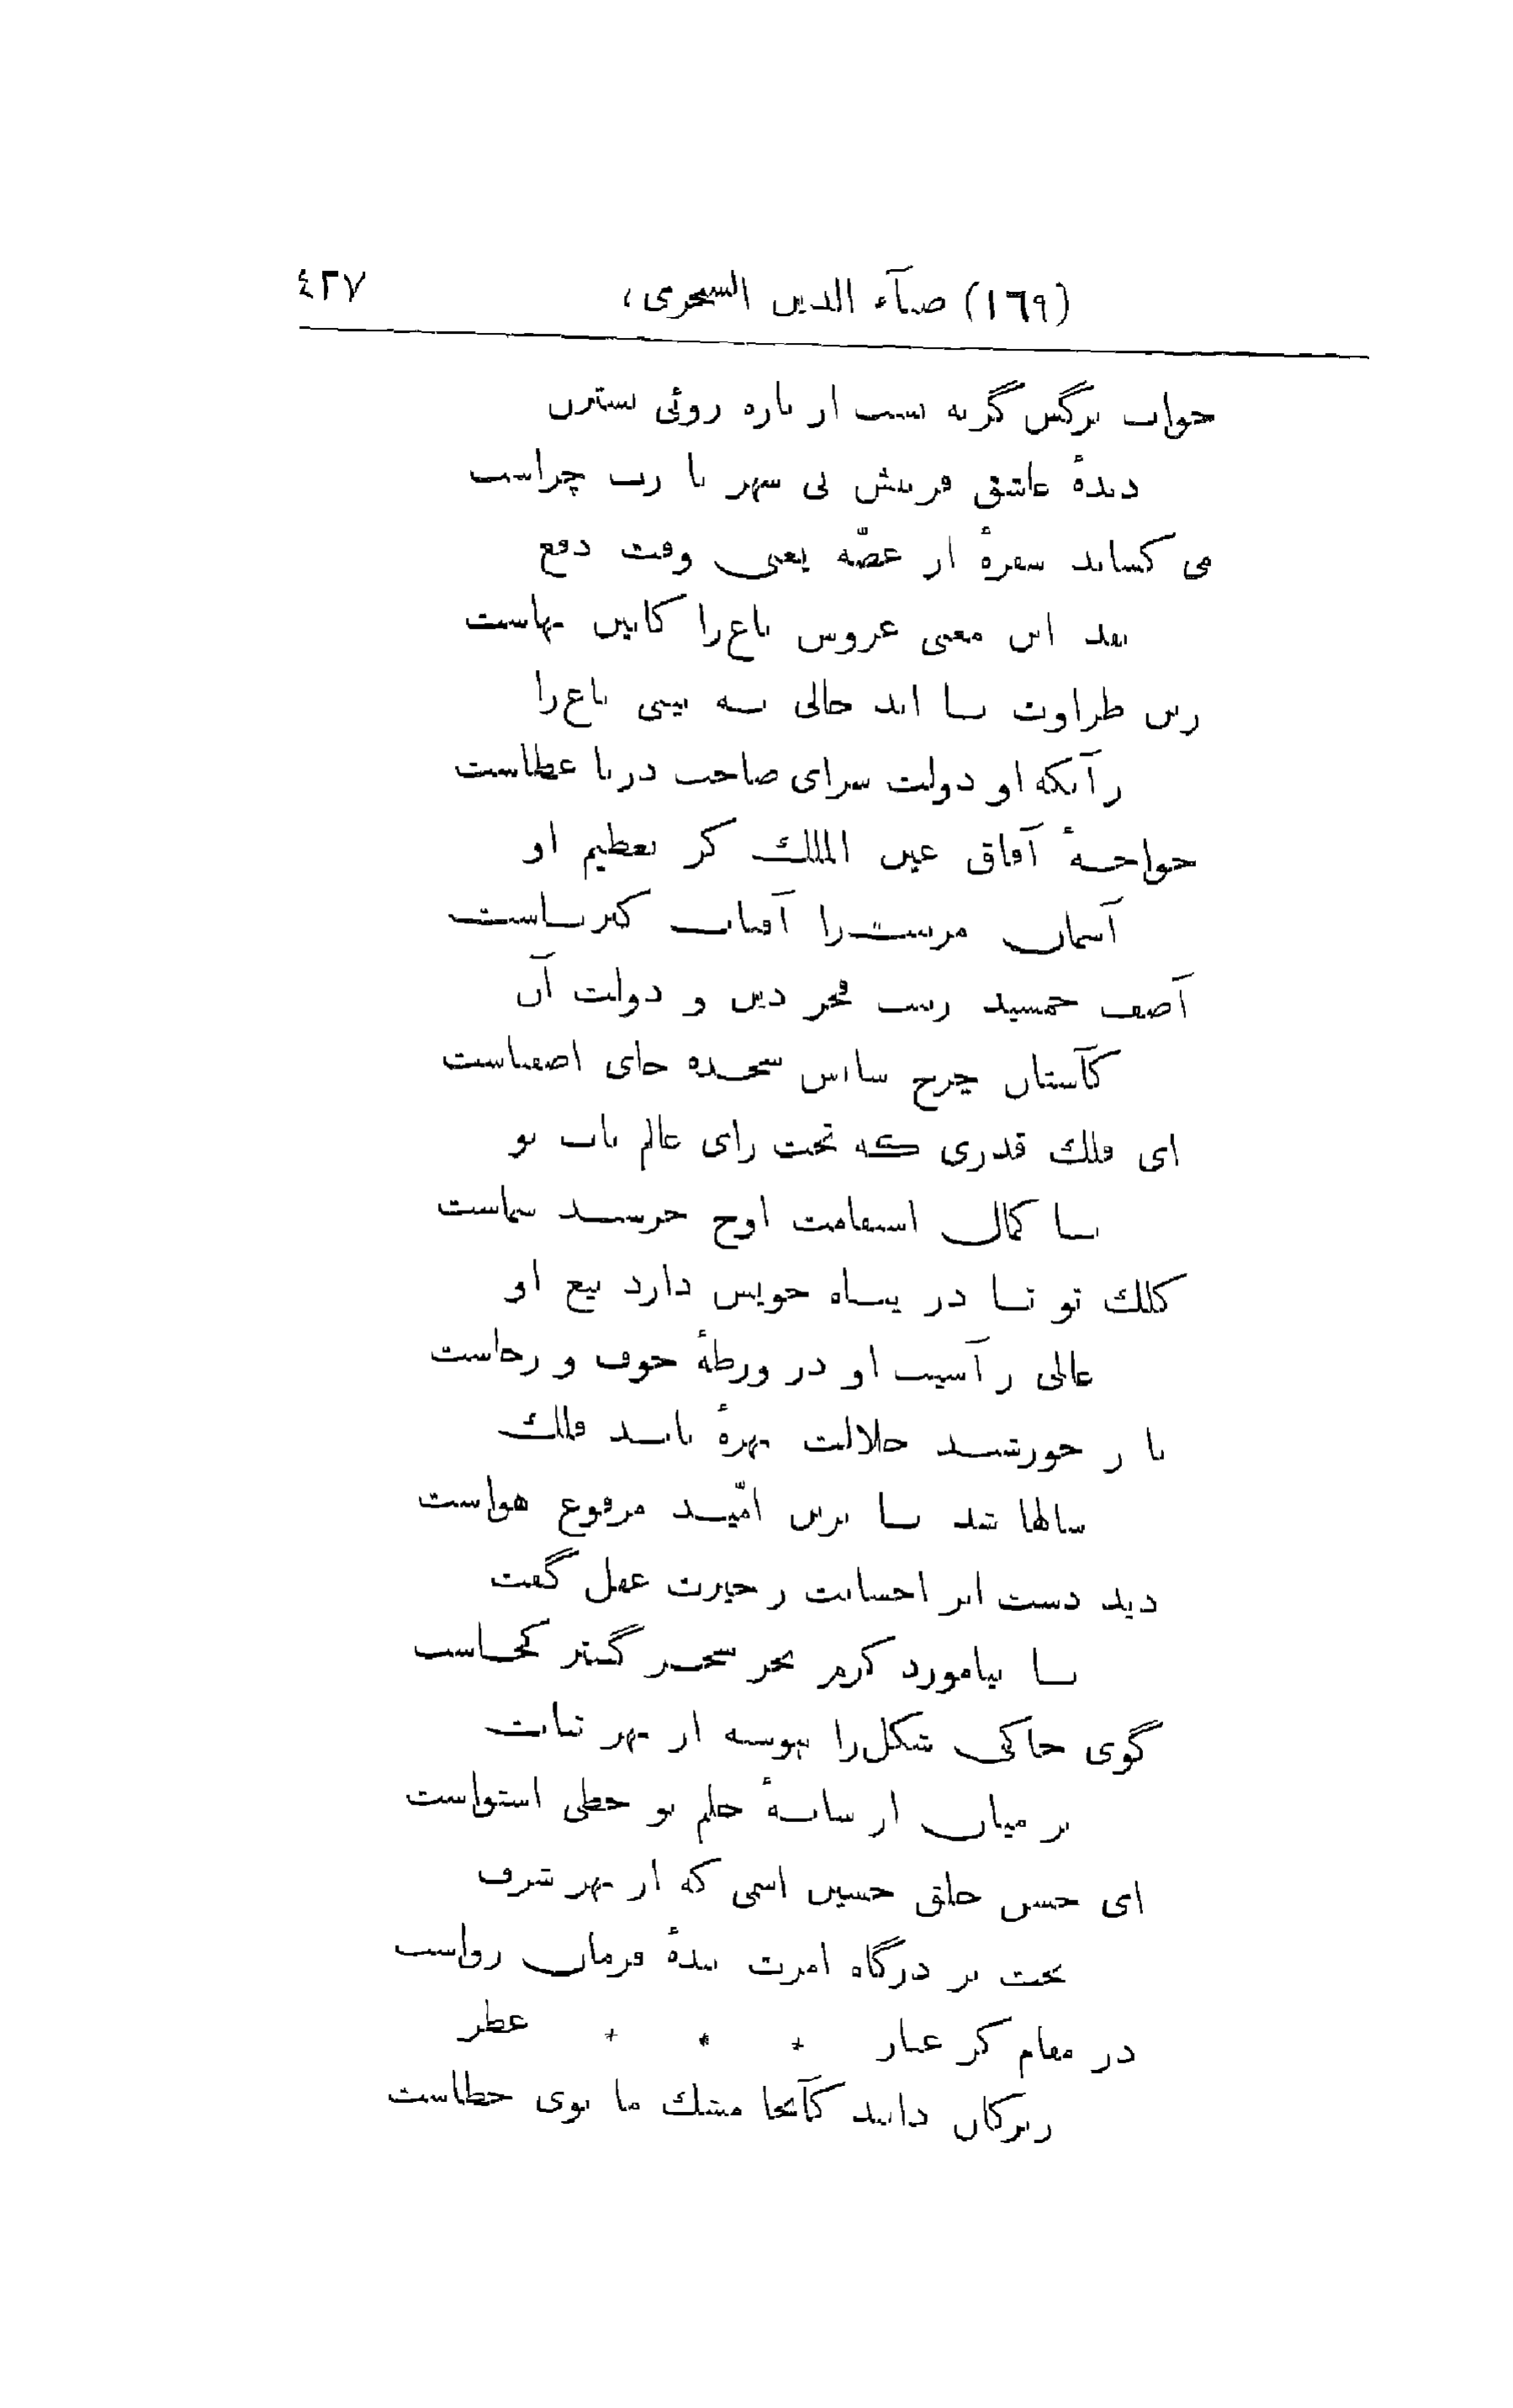 (١٦٩) ضیآء الدین السجزی، ٤٢٧
خواب نرگس گرنه نیست از تازه روئی نسترن
دیدهٔ عاشق فریبش بی سهر یا رب چراست
می کشاید سفرهٔ از غصّه یعنی وقت دفع
نقد این معنی عروس باغ را کابین بهاست
زین طراوت تا ابد خالی نه بینی باغ را
زآنکه او دولت سرای صاحب دریا عطاست
خواجهٔ آفاق عین الملک کز تعظیم او
آسمان مرتبت را آفتاب کبریاست
آصف جمشید رتبت فخر دین و دولت آن
کآستان چرخ سانش سجده جای اصفیاست
ای فلک قدری که تحت رای عالم تاب تو
با کمال استقامت اوج خرشید سماست
کلک تو تا در پناه خویش دارد تیغ او
عالی ز آسیب او در ورطهٔ خوف و رجاست
تا ز خورشید جلالت بهرهٔ یابد فلک
سالها شد تا برین امّید مرفوع هواست
دید دست ابر احسانت ز حیرت عقل گفت
تا بیاموزد کرم بحر سحر گستر کجاست
گوی خاکی شکل را پیوسته از بهر ثبات
بر میان از سایهٔ حلم تو خطی استواست
ای حسن خلق حسین اسمی که از بهر شرف
بخت بر درگاه امرت بندهٔ فرمان رواست
در مقام کز غبار * * * عطر
زیرکان دانند کآنجا مشک با بوی خطاست